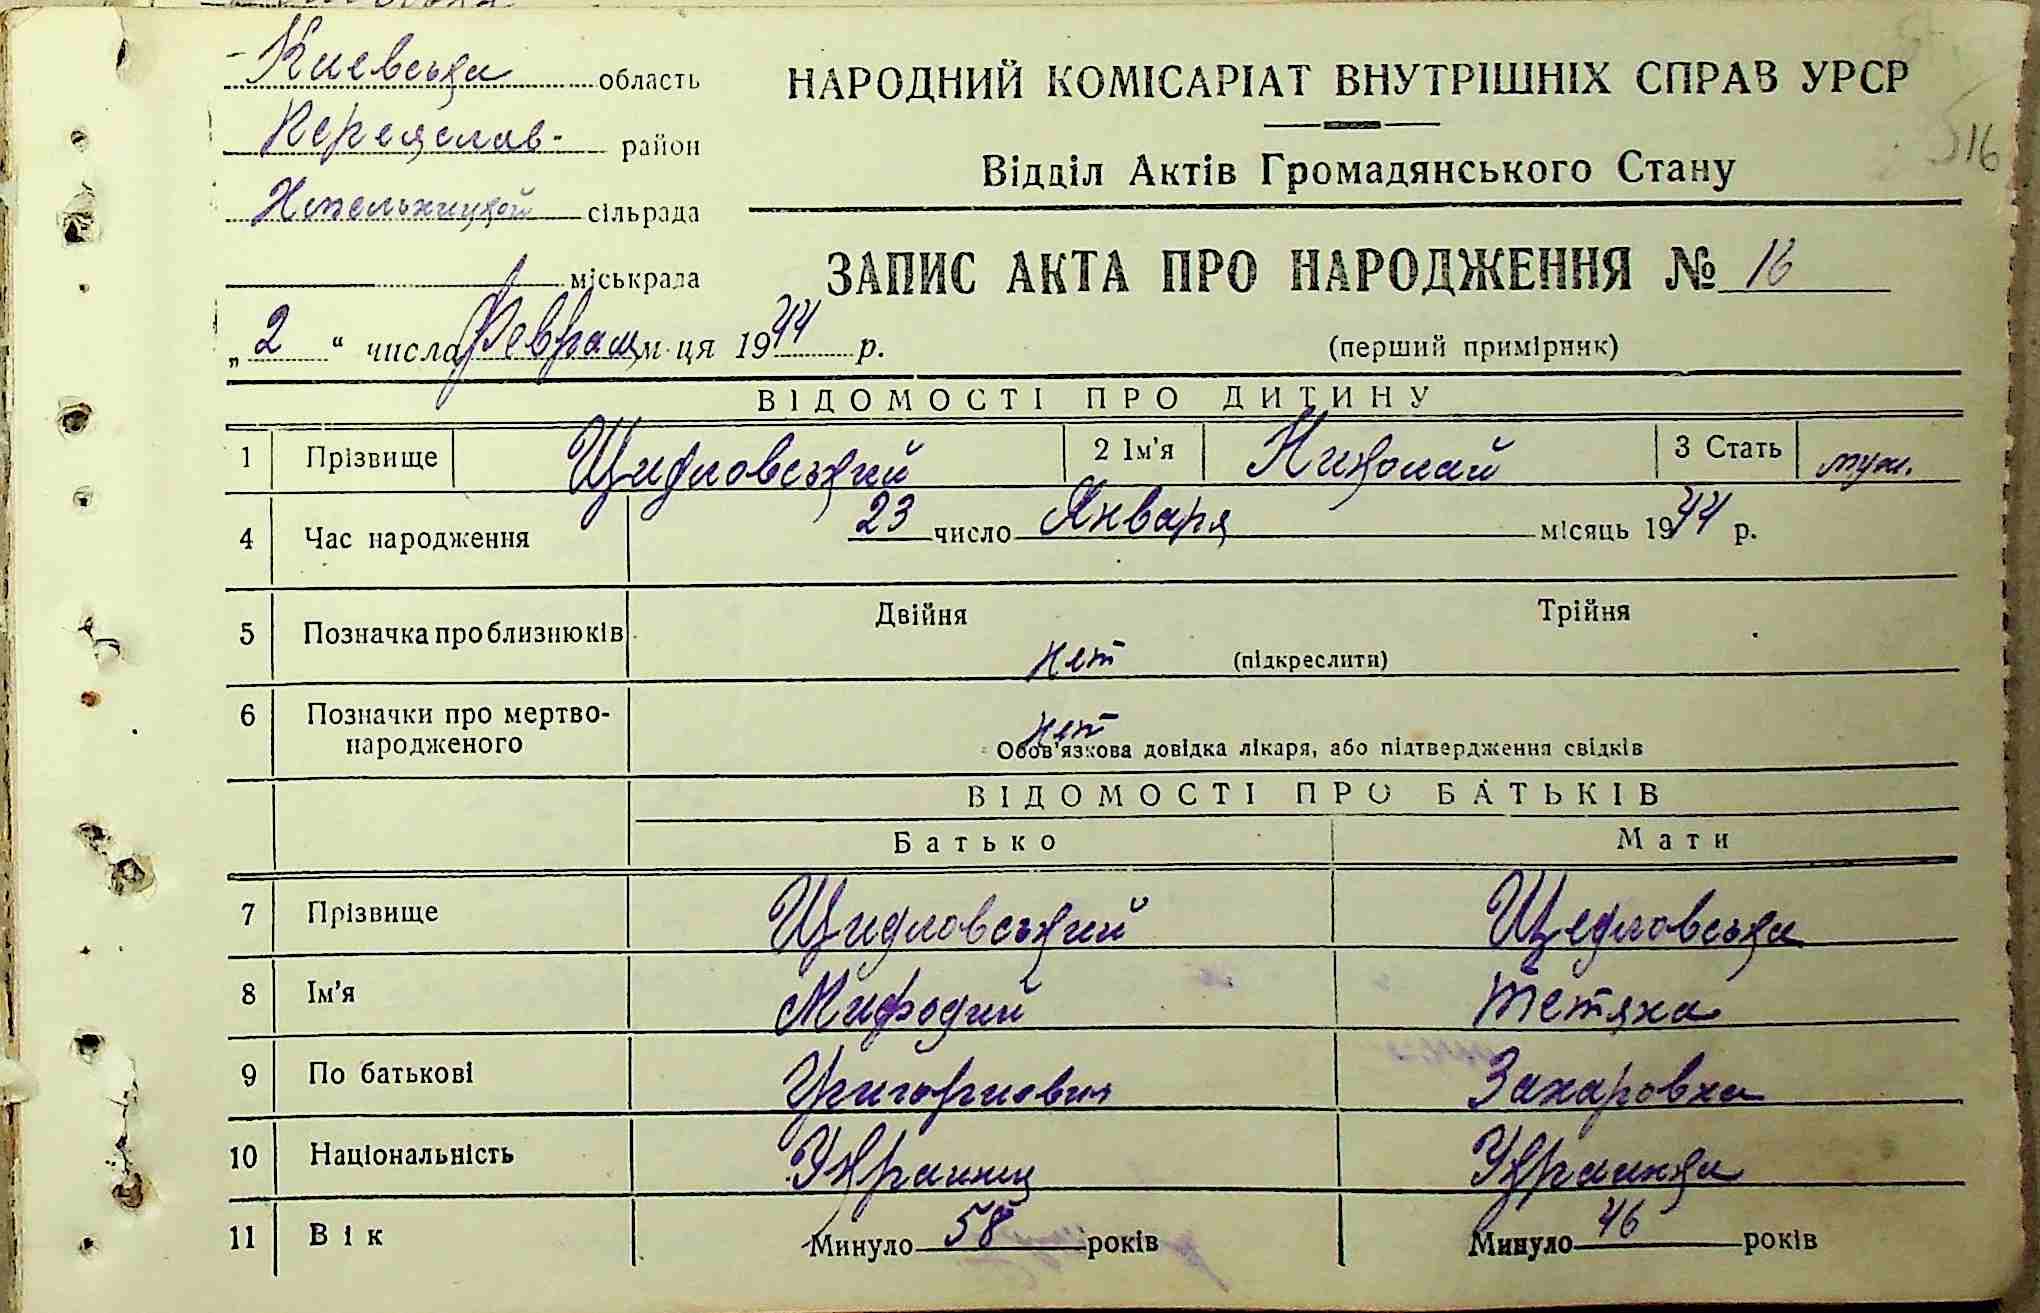 Киевська область
Переяслав- район
Хмельницкой сільрада
міськрада
„2“ числа Февраля м-ця 1944 р.
НАРОДНИЙ КОМІСАРІАТ ВНУТРІШНІХ СПРАВ УРСР
Відділ Актів Громадянського Стану
516
ЗАПИС АКТА ПРО НАРОДЖЕННЯ № 16
(перший примірник)
ВІДОМОСТІ ПРО ДИТИНУ
1 Прізвище Щидловський 2 Ім'я Николай 3 Стать муж.
4 Час народження 23 число Января місяць 1944 р.
5 Позначка про близнюків Двійня Трійня
нет (підкреслити)
6 Позначки про мертво-
народженого нет
Обов'язкова довідка лікаря, або підтвердження свідків
ВІДОМОСТІ ПРО БАТЬКІВ
Батько Мати
7 Прізвище Щидловський Щедловська
8 Ім'я Мифодий Тетяна
9 По батькові Григориович Захаровна
10 Національність Украинец Украинка
11 Вік Минуло 58 років Минуло 46 років